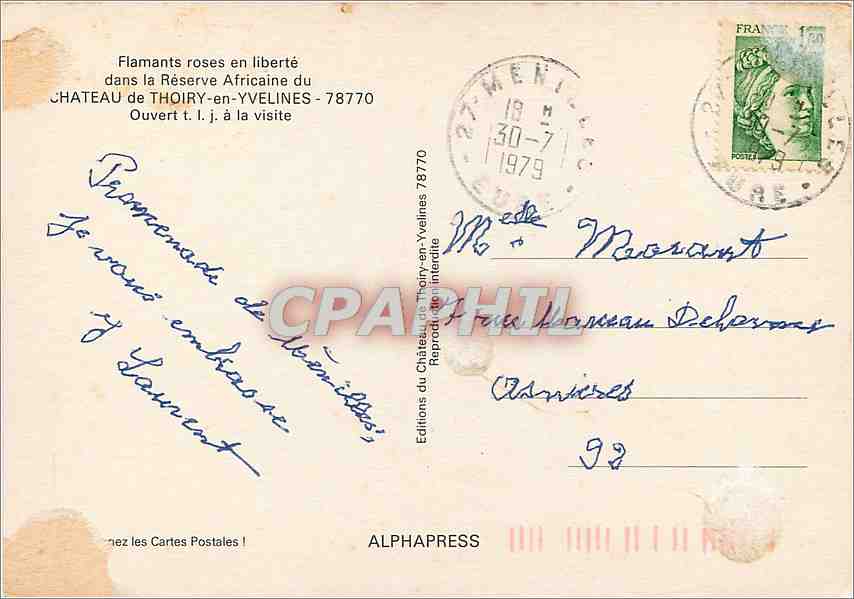 Flamants roses en liberté
dans la Réserve Africaine du
CHATEAU de THOIRY-en-YVELINES - 78770
Ouvert t. l. j. à la visite
Promenade de Ménilles,
je vous embrasse
Laurent
nez les Cartes Postales !
ALPHAPRESS
Editions du Château de Thoiry-en-Yvelines 78770
Reproduction interdite
CPAPHIL
27 - MENILLES
18 H
30-7
1979
EURE
FRANCE 1,00
POSTES
EURE
Morant
rue
Asnières
92